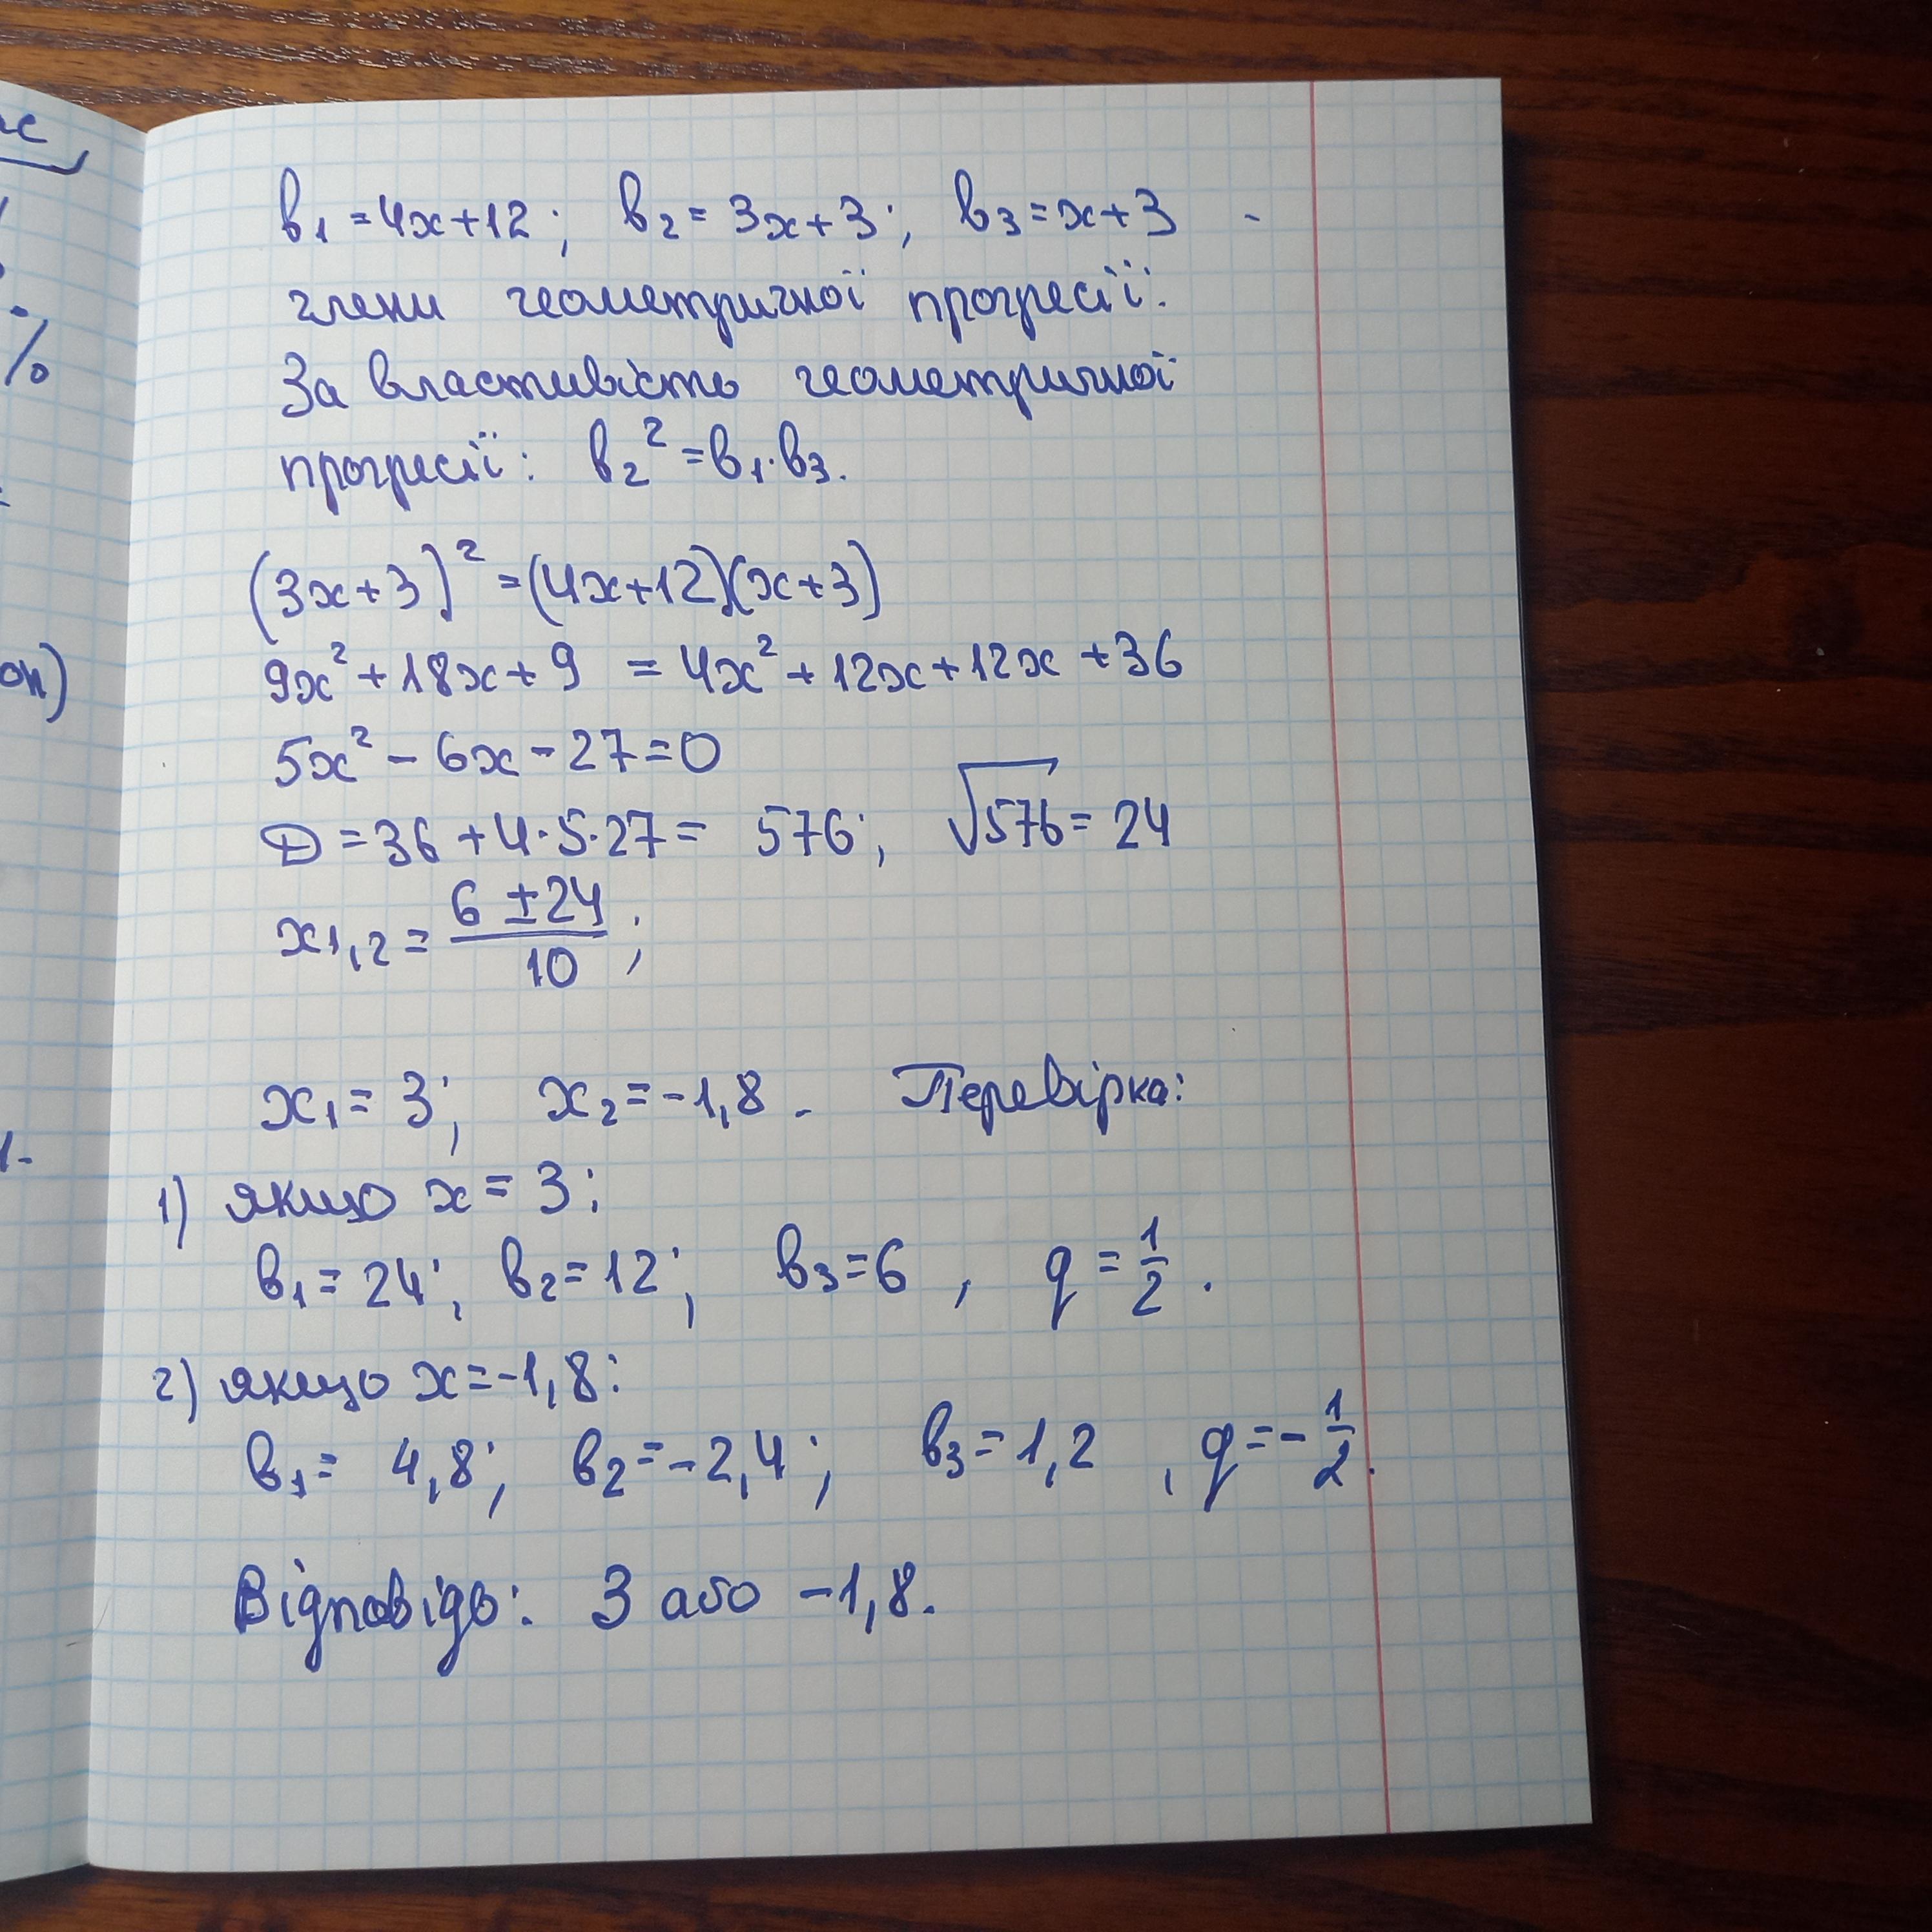 b₁ = 4x+12; b₂ = 3x+3; b₃ = x+3 -
члени геометричної прогресії.
За властивістю геометричної
прогресії: b₂² = b₁·b₃.
(3x+3)² = (4x+12)(x+3)
9x² + 18x + 9 = 4x² + 12x + 12x + 36
5x² - 6x - 27 = 0
D = 36 + 4·5·27 = 576; √576 = 24
x₁,₂ = (6 ± 24)/10;
x₁ = 3; x₂ = -1,8. Перевірка:
1) якщо x = 3:
b₁ = 24; b₂ = 12; b₃ = 6, q = 1/2.
2) якщо x = -1,8:
b₁ = 4,8; b₂ = -2,4; b₃ = 1,2, q = -1/2.
Відповідь: 3 або -1,8.